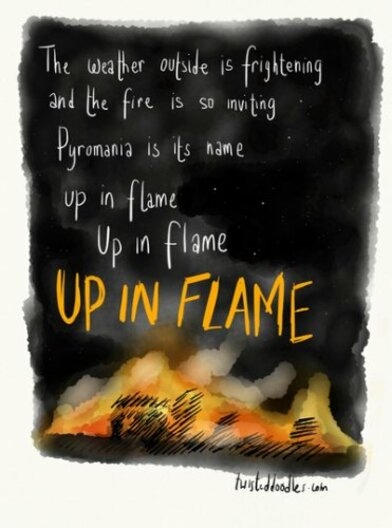 The weather outside is frightening
and the fire is so inviting
Pyromania is its name
up in flame
Up in flame
UP IN FLAME
twisteddoodles.com